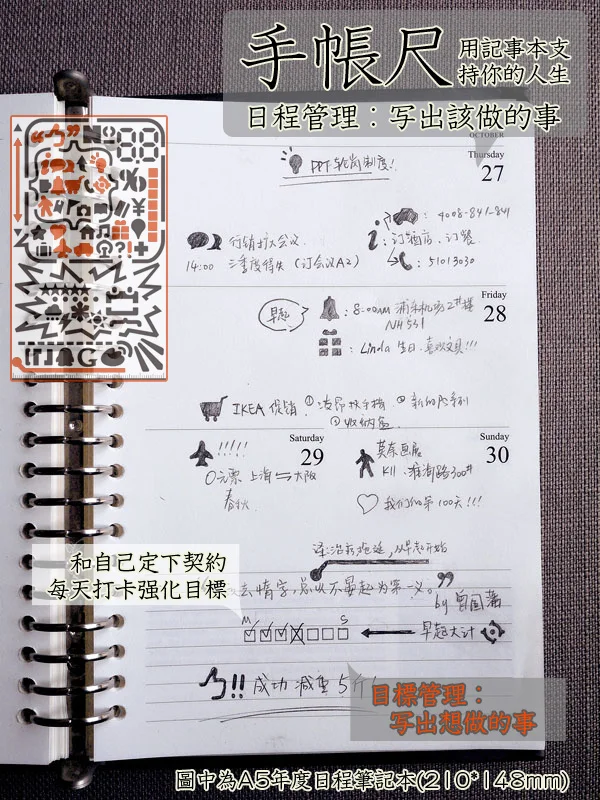 手帳尺
用記事本支
持你的人生
日程管理：写出該做的事
OCTOBER
Thursday
27
PPT 轮岗制度！
行销扩大会议
14:00 三季度得失（订会议A2）
: 4008-841-841
: 订酒店、订餐
: 51013030
Friday
28
早起
: 8:00am 浦东机场2#楼
NH531
: Linda 生日、喜欢文具!!!
IKEA 促销
② 新的
① 收纳盒
Saturday
29
!!!!!
0元票 上海 大阪
春秋
Sunday
30
莫奈画展
K11 淮海路300#
我们的第100天!!!
和自己定下契約
每天打卡强化目標
从早起开始
去惰字，总以不晏起为第一义。”
by 曾国藩
M
S
早起大计
!! 成功 减重 5斤
目標管理：
写出想做的事
圖中為A5年度日程筆記本(210*148mm)